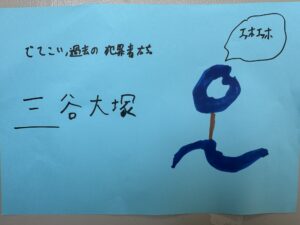 でてこい、過去の犯罪者たち
三谷大塚
エホエホ